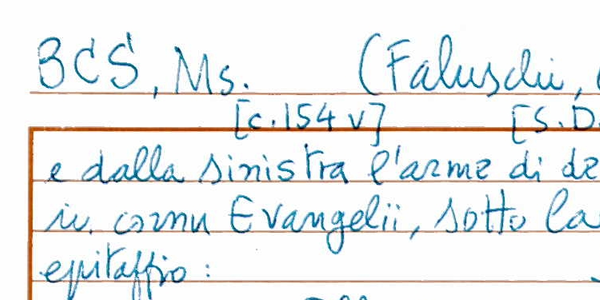 BCS, Ms. (Faluschi,
[c.154 v] [S.D.
e dalla sinistra l'arme di de
in cornu Evangelii, sotto la
epitaffio: